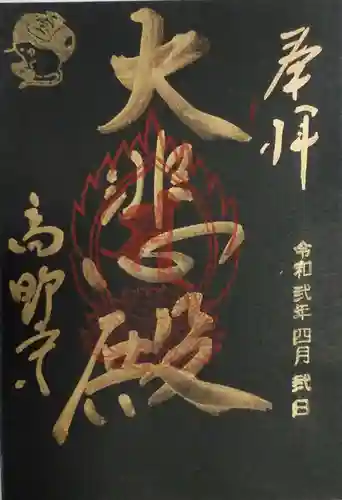 奉拝
令和弐年四月弐日
大悲殿
高明寺